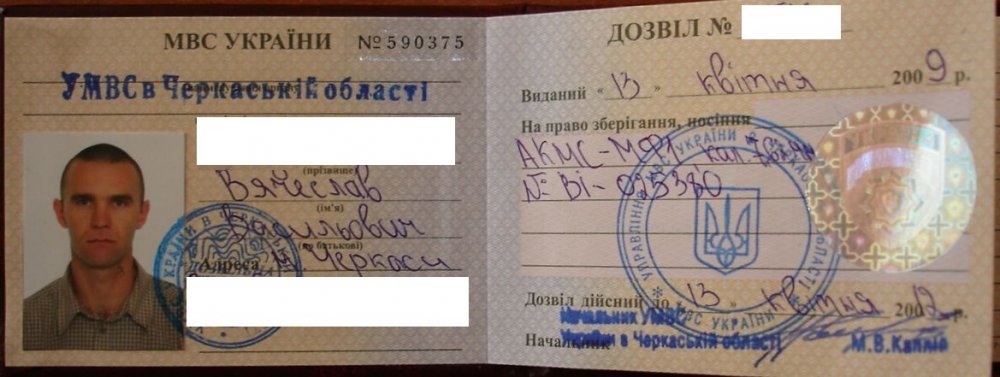 МВС УКРАЇНИ №590375
УМВС в Черкаській області
(прізвище)
Вячеслав
(ім'я)
Васильович
(по батькові)
Адреса м. Черкаси
ДОЗВІЛ №
Виданий "13" квітня 2009 р.
На право зберігання, носіння
АКМС-МФ1, кал. 7,62х
№ ВІ-025380
УПРАВЛІННЯ МВС УКРАЇНИ В
Дозвіл дійсний до "13" квітня 2012 р.
Начальник УМВС
України в Черкаській області
Начальник
М.В.Каппіє